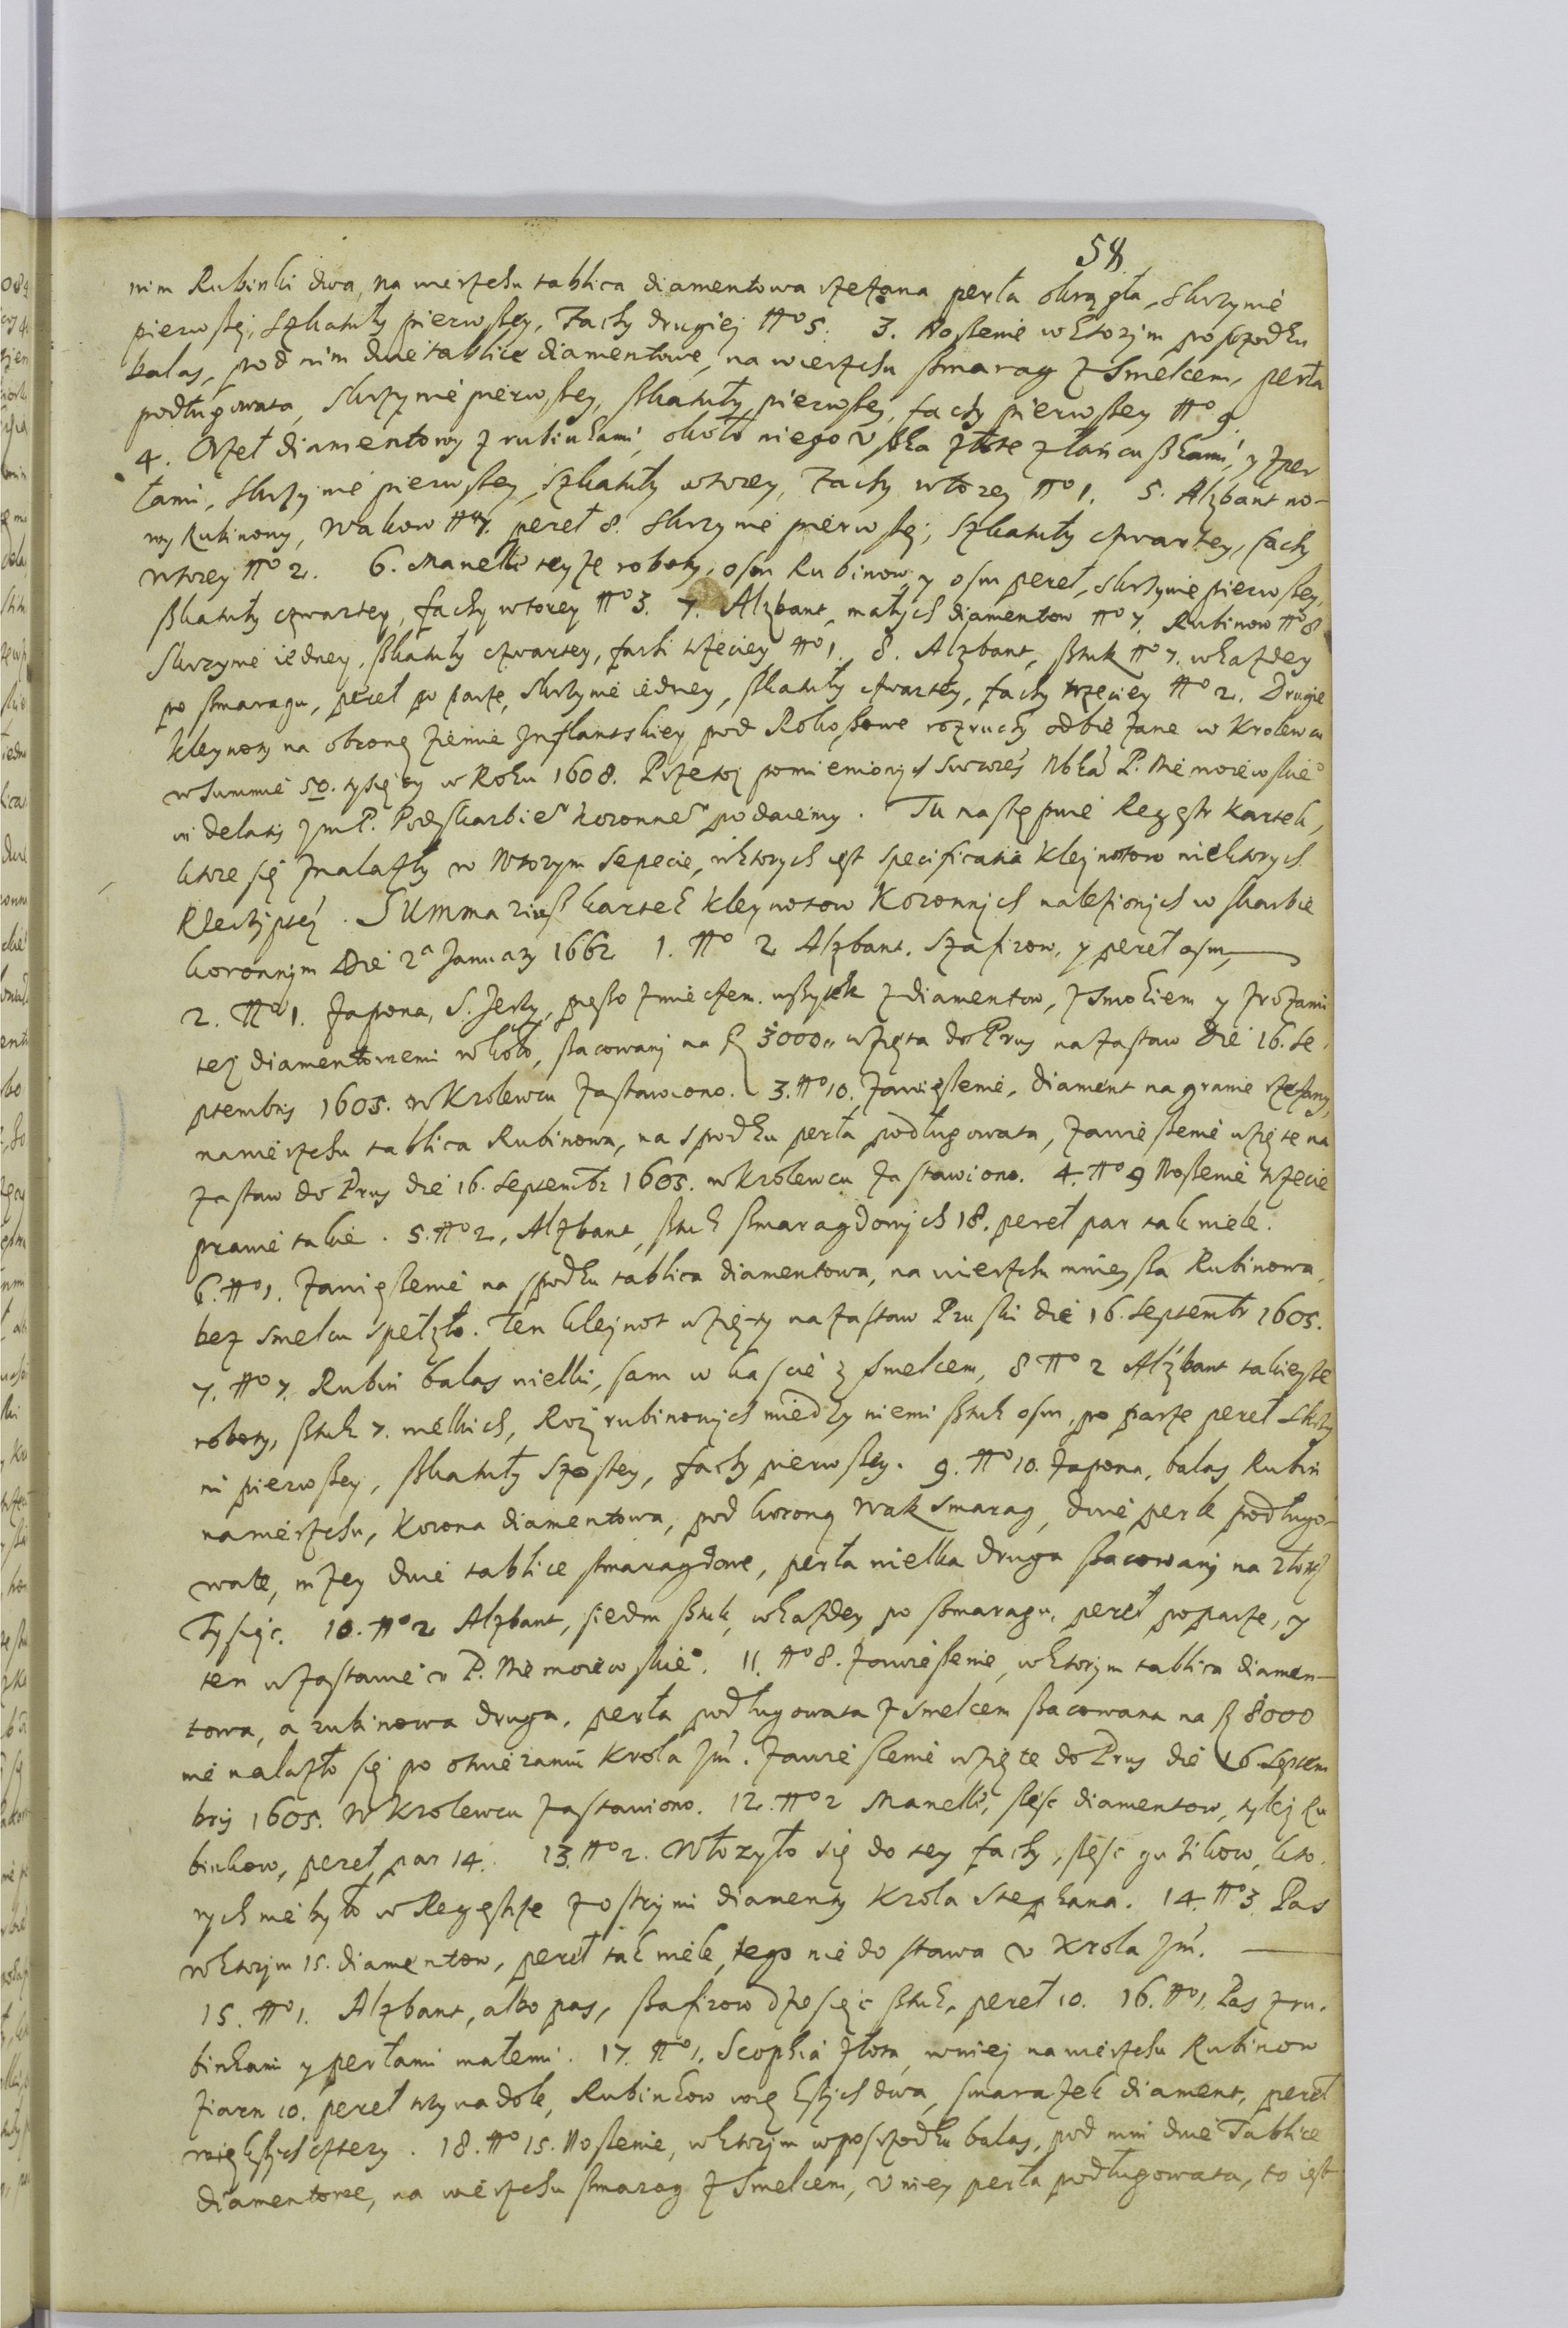 58
nim Rubinki dwa, na wierzchu tablica diamentowa rzezana perła okrągła, skrzynie
pierwszej, szkatuły pierwszey, Fachy drugiej No 5. 3. Noszenie w ktorym posrzodku
balas, pod nim dwie tablice diamentowe, na wierzchu szmarag z smelcem, perła
podługowata, skrzynie pierwszey, szkatuły pierwszey, fachy pierwszey No 9.
4. Orzeł diamentowy z rubinkami, około niego uszka złote z łancuszkami, y z per
łami, skrzynie pierwszey, szkatuły wtorey, Fachy wtorey No 1. 5. Alzbant no-
wy Rubinowy, Wakow No 7. pereł 8. skrzynie pierwszej, szkatuły czwartey, fachy
wtorey No 2. 6. Manelli teyże roboty, osm Rubinow, y osm pereł, skrzynie pierwszey,
szkatuły czwartey, fachy wtorey No 3. 7. Alzbant, małych diamentow No 7. Rubinow No 8
Skrzynie iedney, szkatuły czwartey, fachi trzeciey No 1. 8. Alzbant, sztuk No 7. w każdey
po szmaragu, pereł po parze, skrzynie iedney, szkatuły czwartey, fachy trzeciey No 2. Drugie
kleynoty na obronę ziemie Inflantskiey pod Rokoszowe rozruchy odbieżane w Krolewcu
w summie 50. tysięcy w Roku 1608. Przetoż pomienionych P. Niemoiewskie
delatij JmP. Podskarbie Koronne podaiemy. Tu następuie Regestr kartek,
ktore się znalazły w Wtorym Sepecie, w ktorych iest specificatia klejnotow niektorych
Rleczyptey. SUmmariusz kartek kleynotow Koronnych nalezionych w skarbie
koronnym Die 2a January 1662 1. No 2 Alzbant. Szafirow, y pereł osm,
2. No 1. Zapona, S. Jerzy, pieszo z mieczem. wszytek z diamentow, z smokiem y z rożami
też diamentowemi w koło, szacowany na 3000 wzięta do Prus na zastaw die 16. Se-
ptembris 1605. w Krolewcu zastawiono. 3. No 10. Zawieszenie, diament na granie rzezany,
na wierzchu tablica Rubinowa, na spodku perła podługowata, zawieszenie wzięte na
zastaw do Prus die 16. Septembr 1605. w Krolewcu zastawiono. 4. No 9 Noszenie trzecie
prawie takie. 5. No 2, Alzbant, sztuk szmaragdowych 18. pereł par tak wiele.
6. No 1. Zawieszenie na spodku tablica diamentowa, na wierzchu mnieysza Rubinowa,
bez smelcu spełzło. Ten klejnot wzięty na zastaw Pruski die 16. Septembr 1605.
7. No 7. Rubin balas wielki, sam w kascie z smelcem, 8 No 2 Alzbant takieyże
roboty, sztuk 7. wielkich, Roż rubinowych miedzy niemi sztuk osm, po parze pereł Skrzy
ni pierwszey, szkatuły szostey, fachy pierwszey. 9. No 10. Zapona, balas Rubin
na wierzchu, Korona diamentowa, pod koroną Wak smarag, dwie perle podługo-
wate, niżey dwie tablice szmaragdowe, perła wielka druga szacowany na złotych
Tysięc. 10. No 2 Alzbant, siedm sztuk, w każdey po szmaragu, pereł po parze, y
ten w zastawie u P. Niemoiewskie. 11. No 8. Zawieszenie, w ktorym tablica diamen-
towa, a rubinowa druga, perła podługowata z smelcem szacowana na 8000
nie nalazło się po otwieraniu Krola Jm. Zawieszenie wzięte do Prus die 16 Septem
bris 1605. W Krolewcu zastawiono. 12. No 2 Manelli, szesc diamentow, tylęż Ru
binkow, pereł par 14. 13. No 2. Włożyło się do tey fachy, szesc guzikow, kto-
rych nie było w Regestrze z ostrymi diamenty Krola Stephana. 14. No 3. Pas
w ktorym 15. diamentow, pereł tak wiele, tego nie dostawa u Krola Jm.
15. No 1. Alzbant, albo pas, szafirow dziesięc sztuk, pereł 10. 16. No 1. Pas z ru-
binkami y perłami małemi. 17. No 1. Scophia złota, w niej na wierzchu Rubinow
ziarn 10. pereł trzy na dole, Rubinkow większych dwa, smarażek diament, pereł
większych cztery. 18. No 15. Noszenie, w ktorym wposrzodku balas, pod nim dwie Tablice
diamentowe, na wierzchu szmarag z smelcem, u niey perła podługowata, to iest